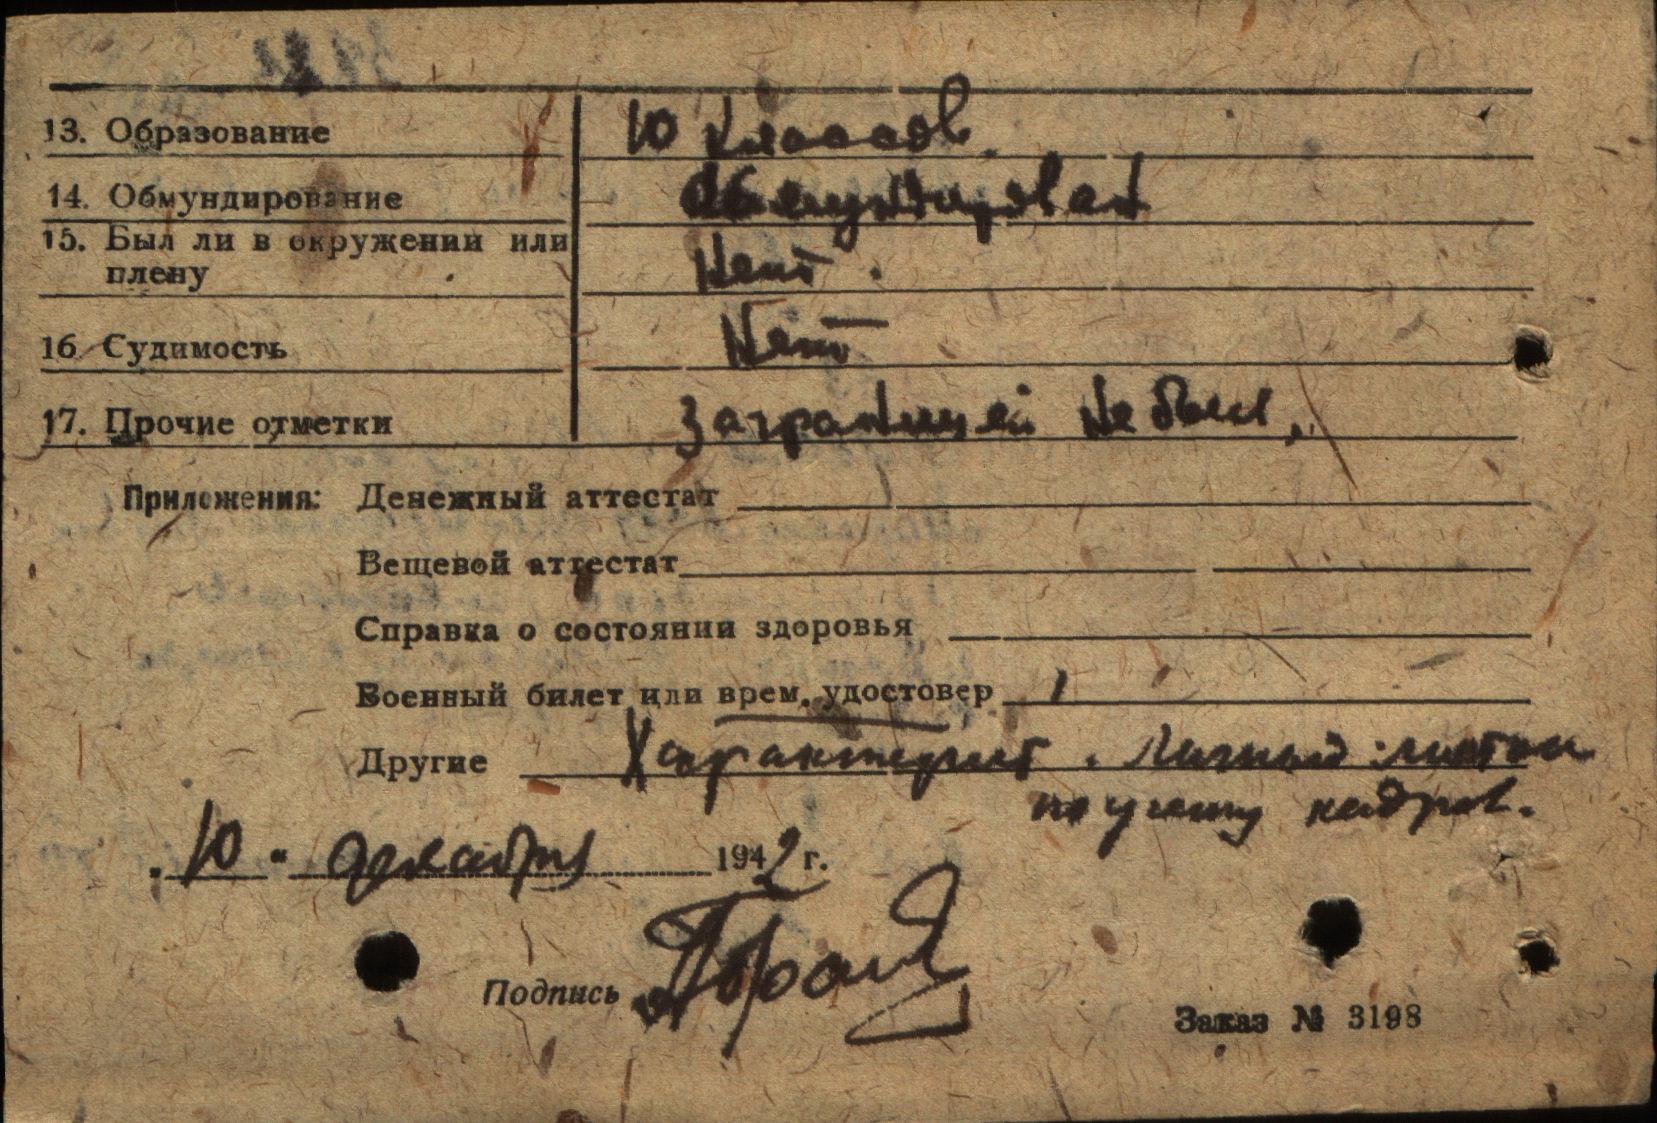 13. Образование 10 классов.
14. Обмундирование Обмундирован
15. Был ли в окружении или
плену Нет.
16. Судимость Нет
17. Прочие отметки Заграницей не был,
Приложения: Денежный аттестат
Вещевой аттестат
Справка о состоянии здоровья
Военный билет или врем. удостовер 1
Другие Характерист. Личный листок
по учету кадров.
„10“ декабря 1942 г.
Подпись
Заказ № 3198